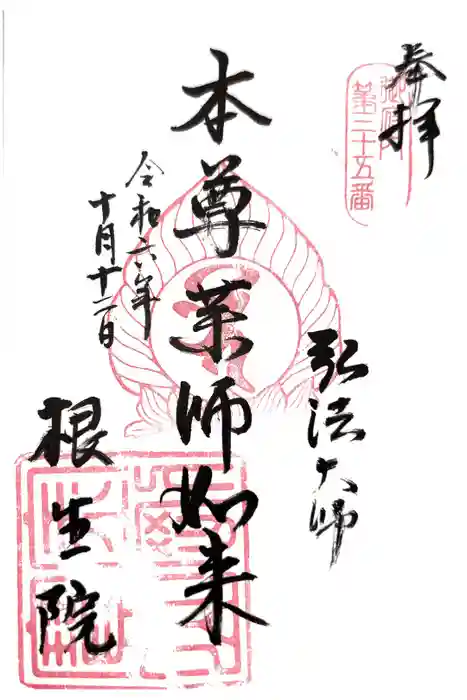 奉拝
御府内
第三十五番
弘法大師
本尊薬師如来
令和六年
十月十二日
根生院